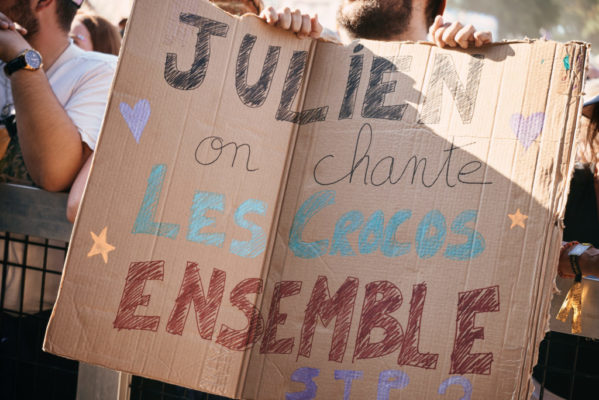 JULIEN
on chante
LES CROCOS
ENSEMBLE
STP ?